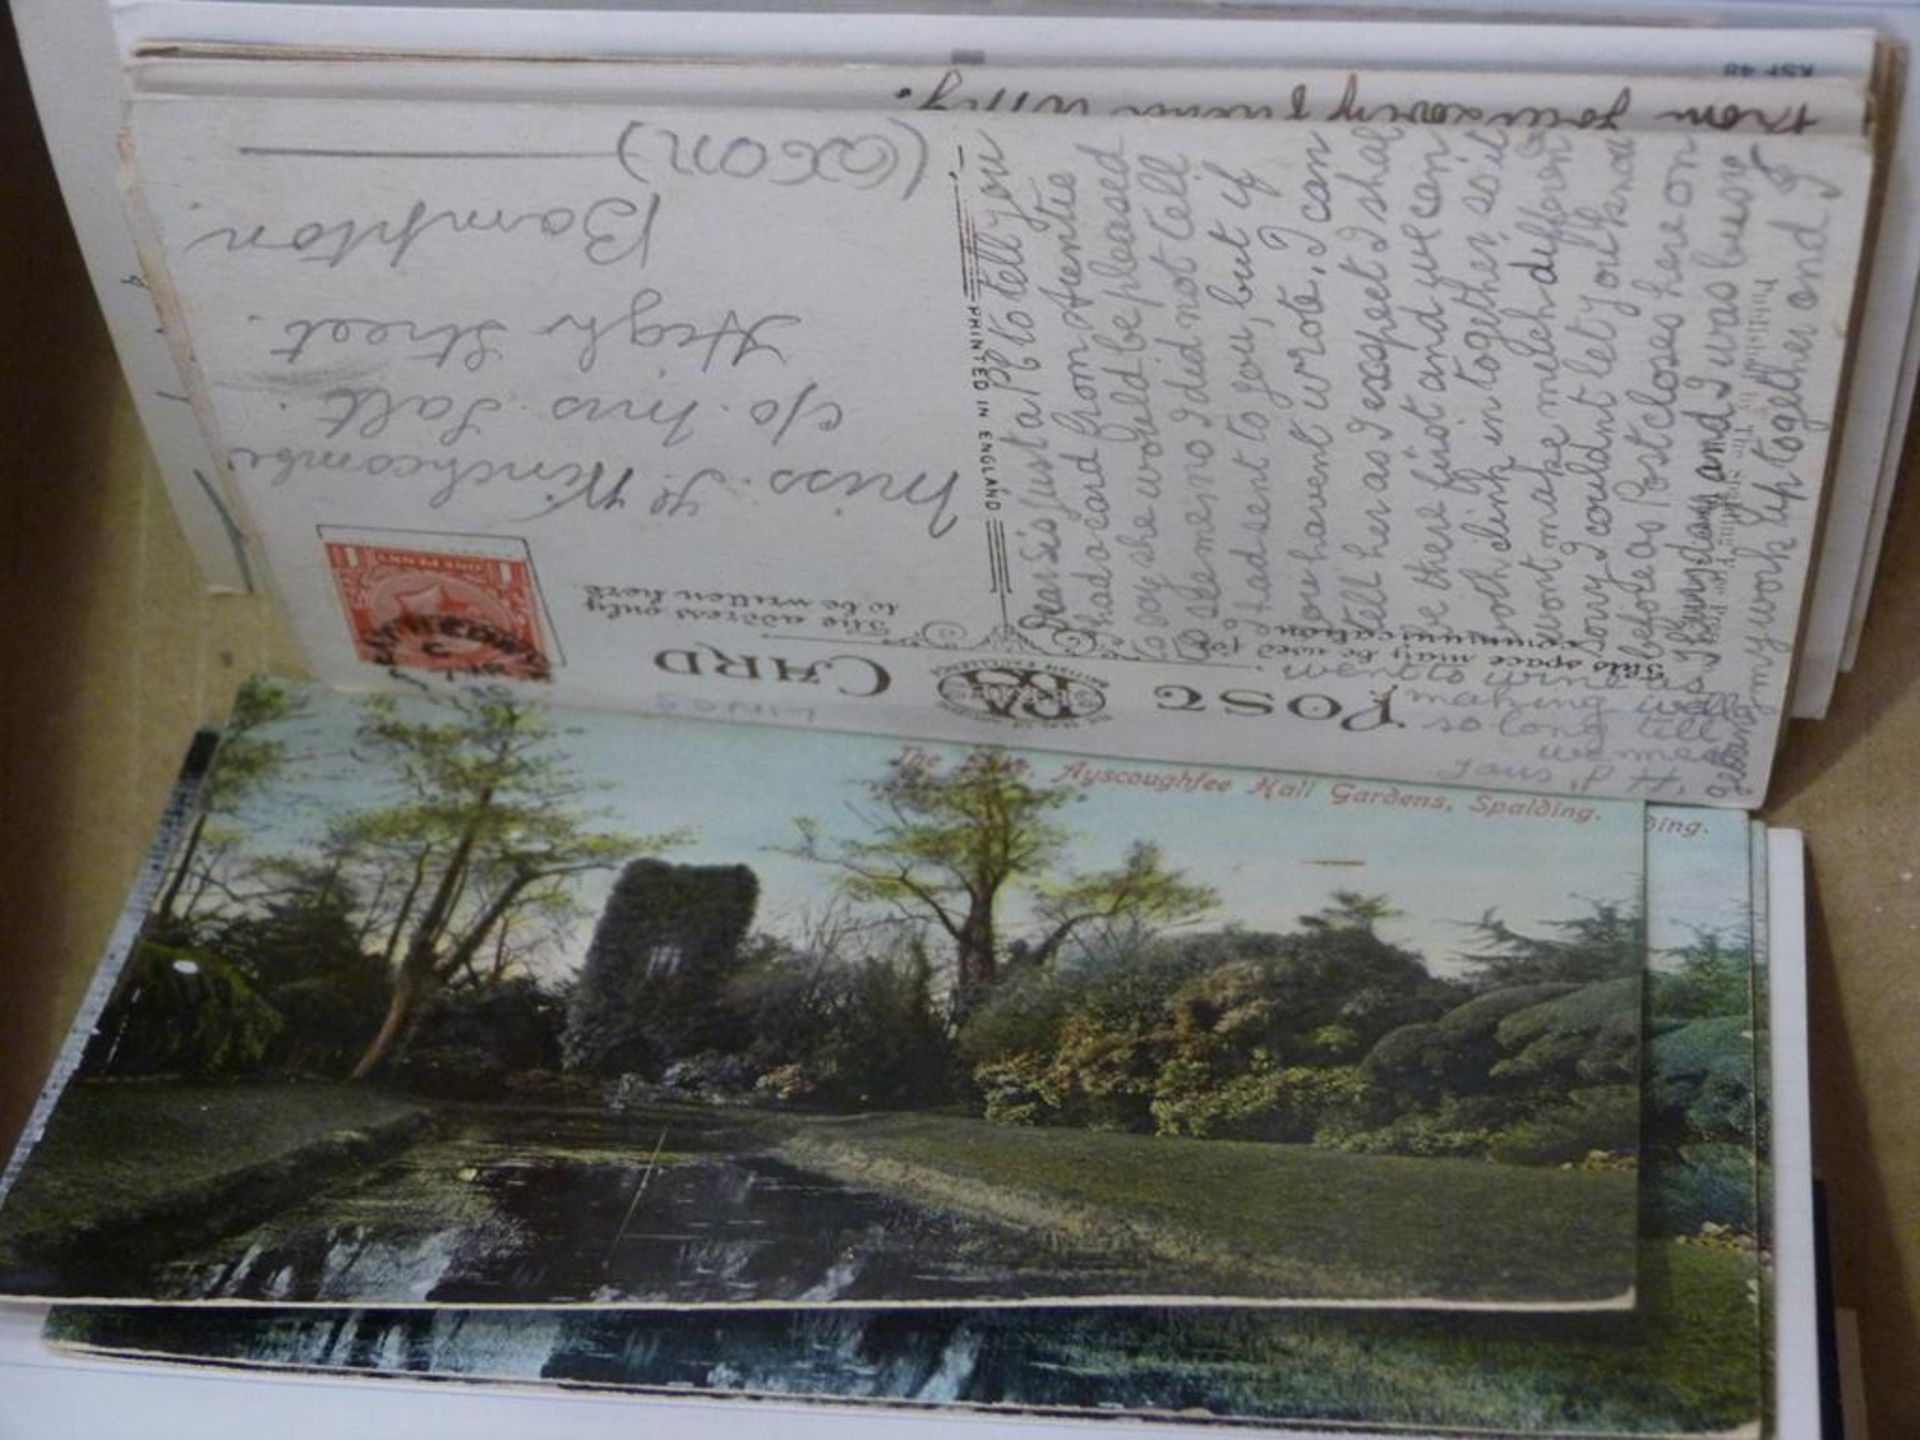 POST CARD
This space may be used for
communication
The address only
to be written here.
PRINTED IN ENGLAND
ONE PENNY
Miss. Winchcombe.
c/o. Mrs. Salt.
High Street.
Bampton.
(Oxon)
Dear Sis just a PC to tell you
I had a card from Auntie
to say she would be pleased
to see me no I did not tell
I had sent to you, but if
you havent wrote, I can
tell her as I exspect I shall
be there first and we can
both clink in together so it
wont make much different
sorry I couldnt let you know
before as Post closes here on
Thursday and I was busy
getting my work up together and I
so long till
we meet
making
The Lake, Ayscoughfee Hall Gardens, Spalding.
ding.
from your loving friend Willy.